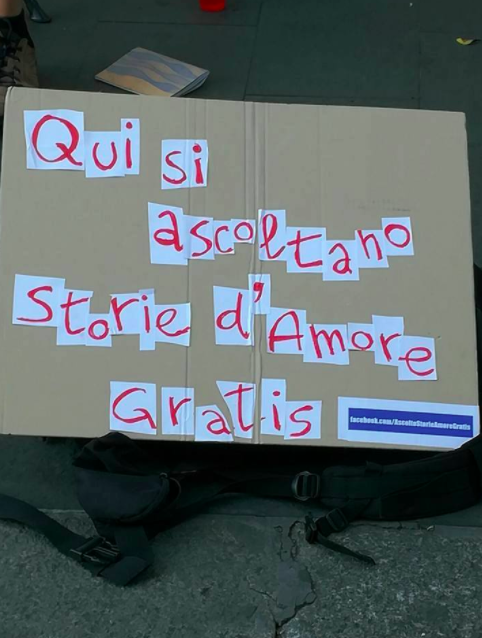 Qui si
ascoltano
Storie d'Amore
Gratis
facebook.com/AscoltoStorieAmoreGratis